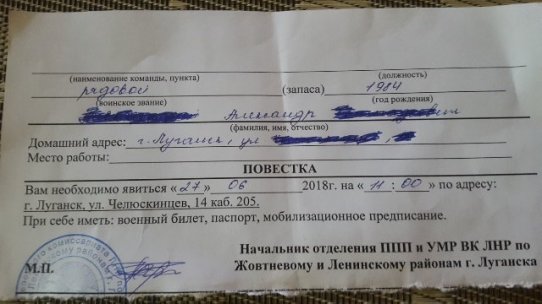 (наименование команды, пункта) (должность)
рядовой (запаса) 1984
(воинское звание) (год рождения)
Александр
(фамилия, имя, отчество)
Домашний адрес: г. Луганск, ул
Место работы:
ПОВЕСТКА
Вам необходимо явиться «27» 06 2018г. на «11 : 00» по адресу:
г. Луганск, ул. Челюскинцев, 14 каб. 205.
При себе иметь: военный билет, паспорт, мобилизационное предписание.
Начальник отделения ППП и УМР ВК ЛНР по
М.П. Жовтневому и Ленинскому районам г. Луганска